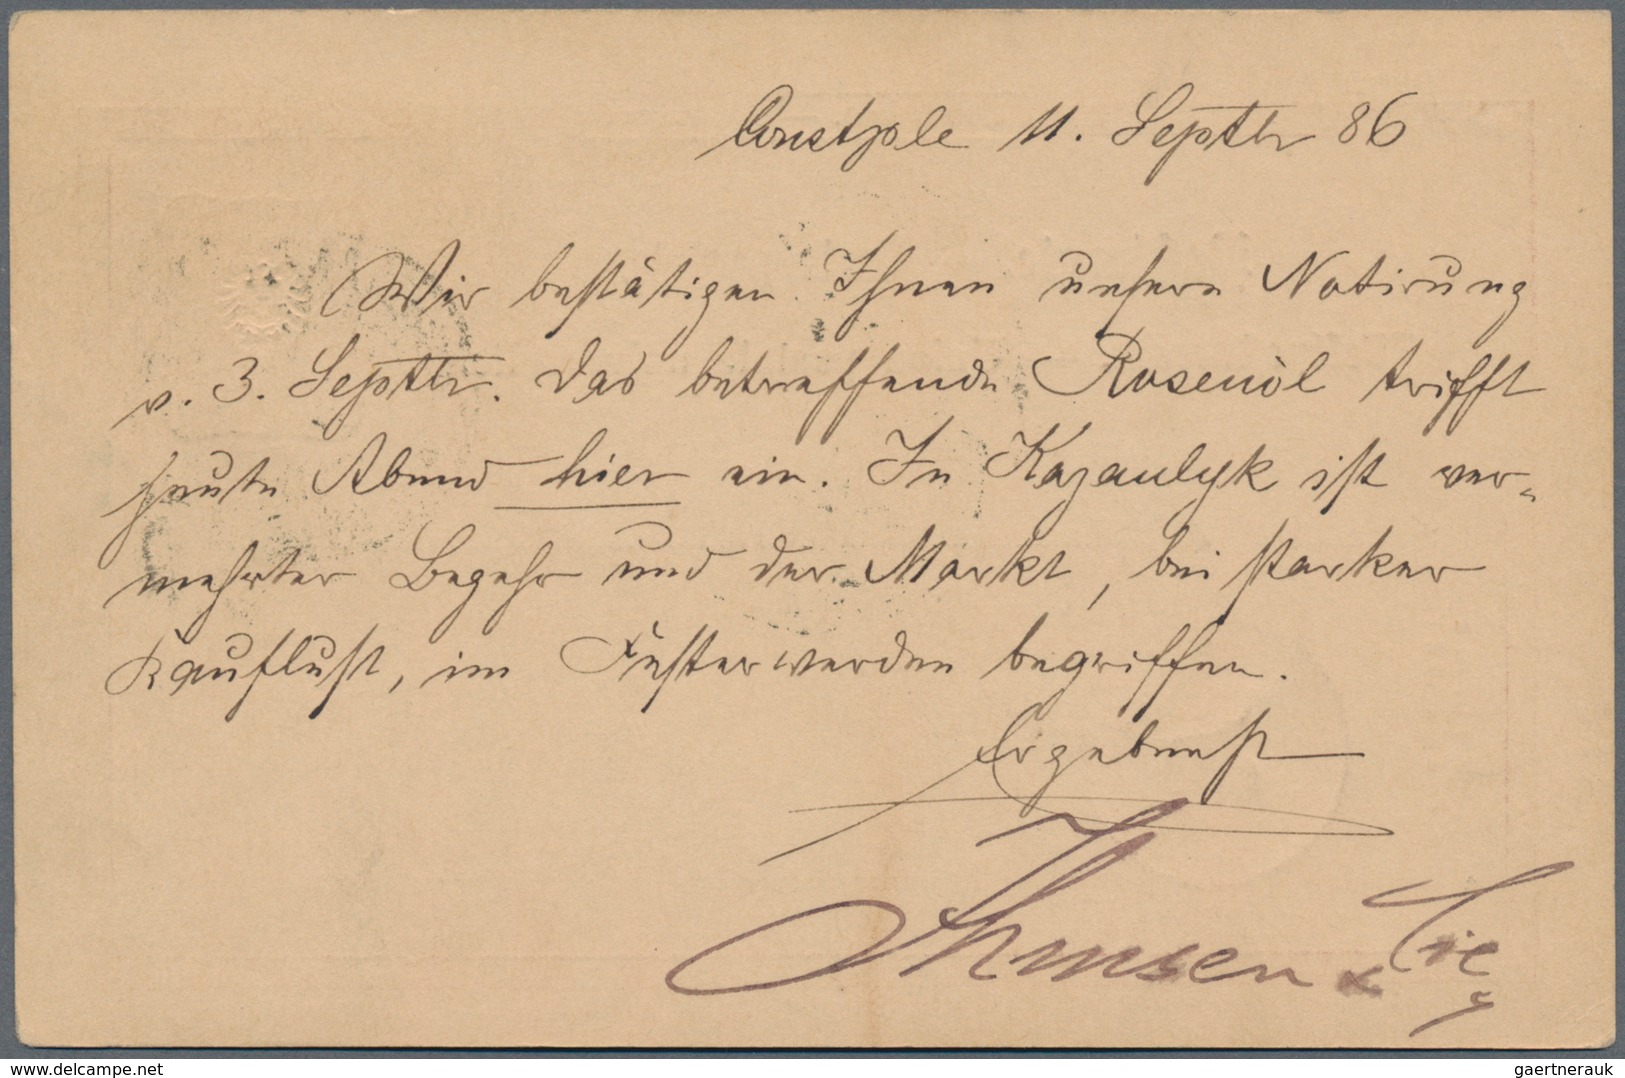 Constple 11. Septbr 86
Wir bestätigen Ihnen unsere Notirung
v. 3. Septbr. Das betreffende Rosenöl trifft
heute Abend hier ein. In Kazanlyk ist ver-
mehrter Begehr und der Markt, bei starker
Kauflust, im Festerwerden begriffen.
Ergebenst
Ihmsen & Cie
delcampe.net
gaertnerauk